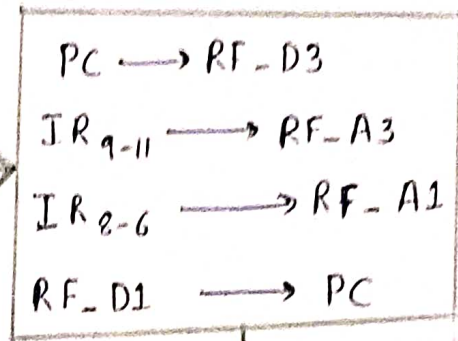 PC → RF_D3
IR 9-11 → RF_A3
IR 8-6 → RF_A1
RF_D1 → PC